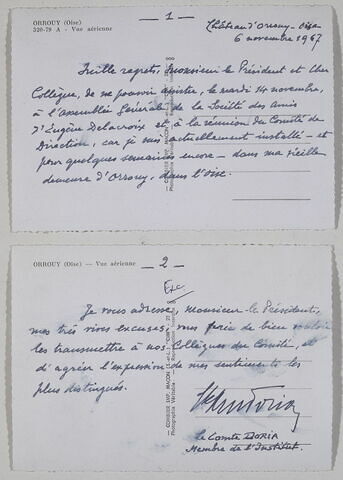 ORROUY (Oise)
320-79 A - Vue aérienne
— 1 —
Château d'Orrouy - Oise
6 novembre 1967
Mille regrets, Monsieur le Président et Cher
Collègue, de ne pouvoir assister, le mardi 14 novembre,
à l'assemblée Générale de la Société des Amis
d'Eugène Delacroix et à la réunion du Comité de
Direction, car je suis actuellement installé — et
pour quelques semaines encore — dans ma vieille
demeure d'Orrouy, dans l'Oise.
ORROUY (Oise) — Vue aérienne
— 2 —
Exc
Je vous adresse, Monsieur le Président,
mes très vives excuses, vous prie de bien vouloir
les transmettre à nos Collègues du Comité, et
d'agréer l'expression de mes sentiments les
plus distingués.
le Comte DORIA
Membre de l'Institut.